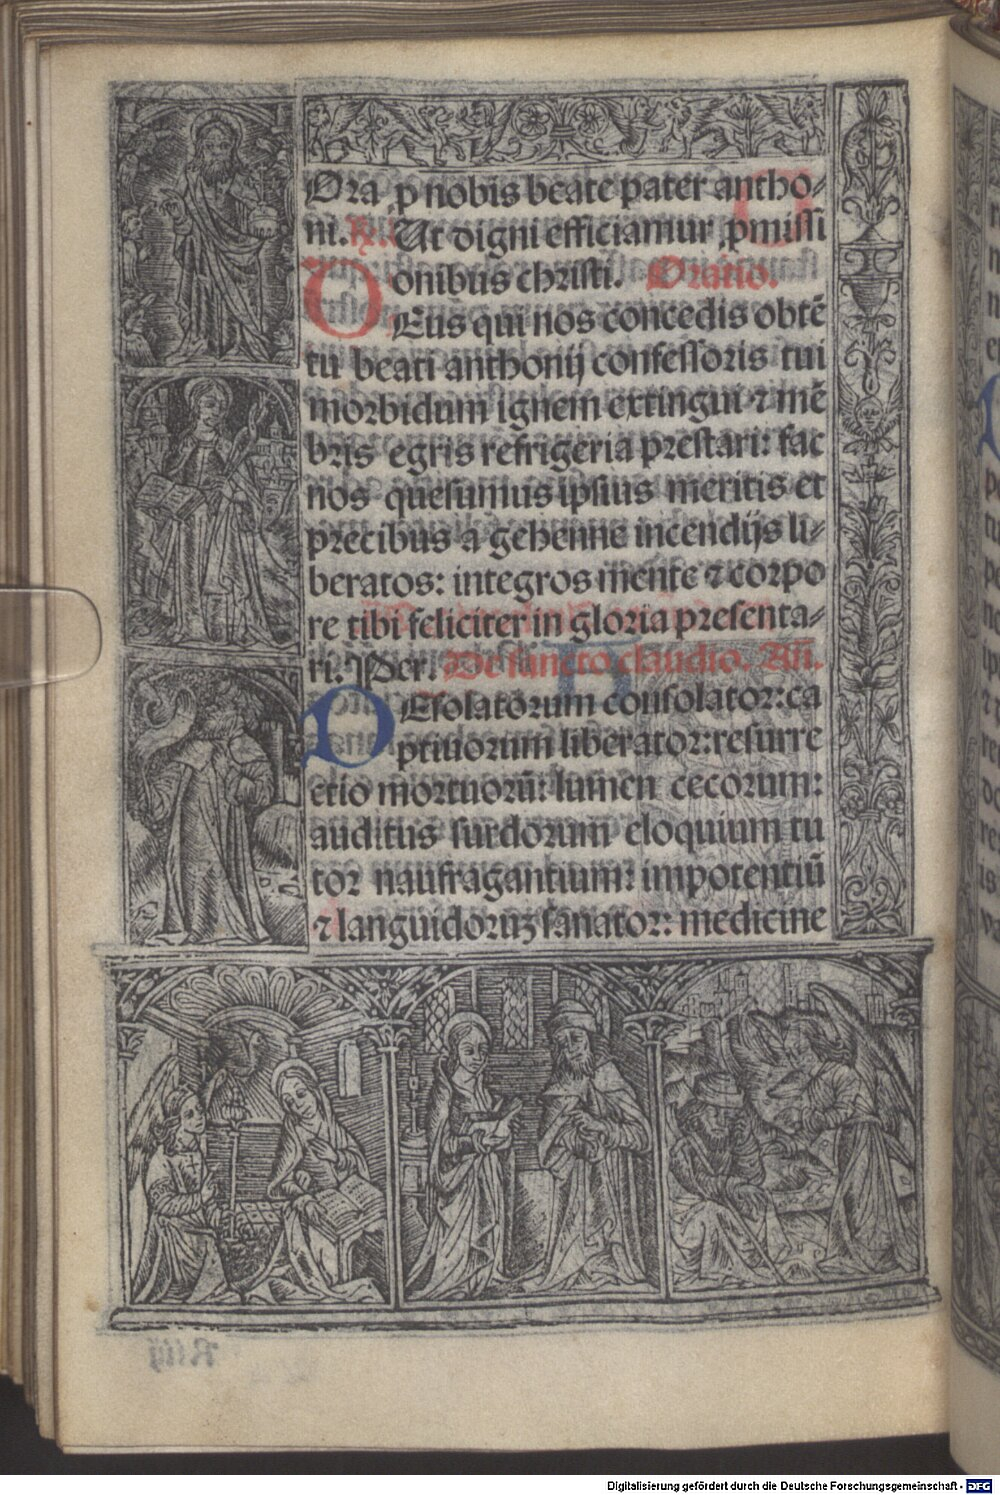 Ora ꝓ nobis beate pater antho⸗
ni. ℟. Ut digni efficiamur ꝓmissi
onibus christi. Oratio.
DEus qui nos concedis obtē
tu beati anthonij confessoris tui
morbidum ignem extingui ⁊ mē
bris egris refrigeria prestari: fac
nos quesumus ipsius meritis et
precibus a gehenne incendijs li⸗
beratos: integros mente ⁊ corpo
re tibi feliciter in gloria presenta⸗
ri. Per. De sancto claudio. Añ.
DEsolatorum consolator: ca
ptiuorum liberator: resurre
ctio mortuorū: lumen cecorum:
auditus surdorum eloquium tu
tor naufragantium: impotentiū
⁊ languidorumꝫ sanator: medicine
Digitalisierung gefördert durch die Deutsche Forschungsgemeinschaft - DFG